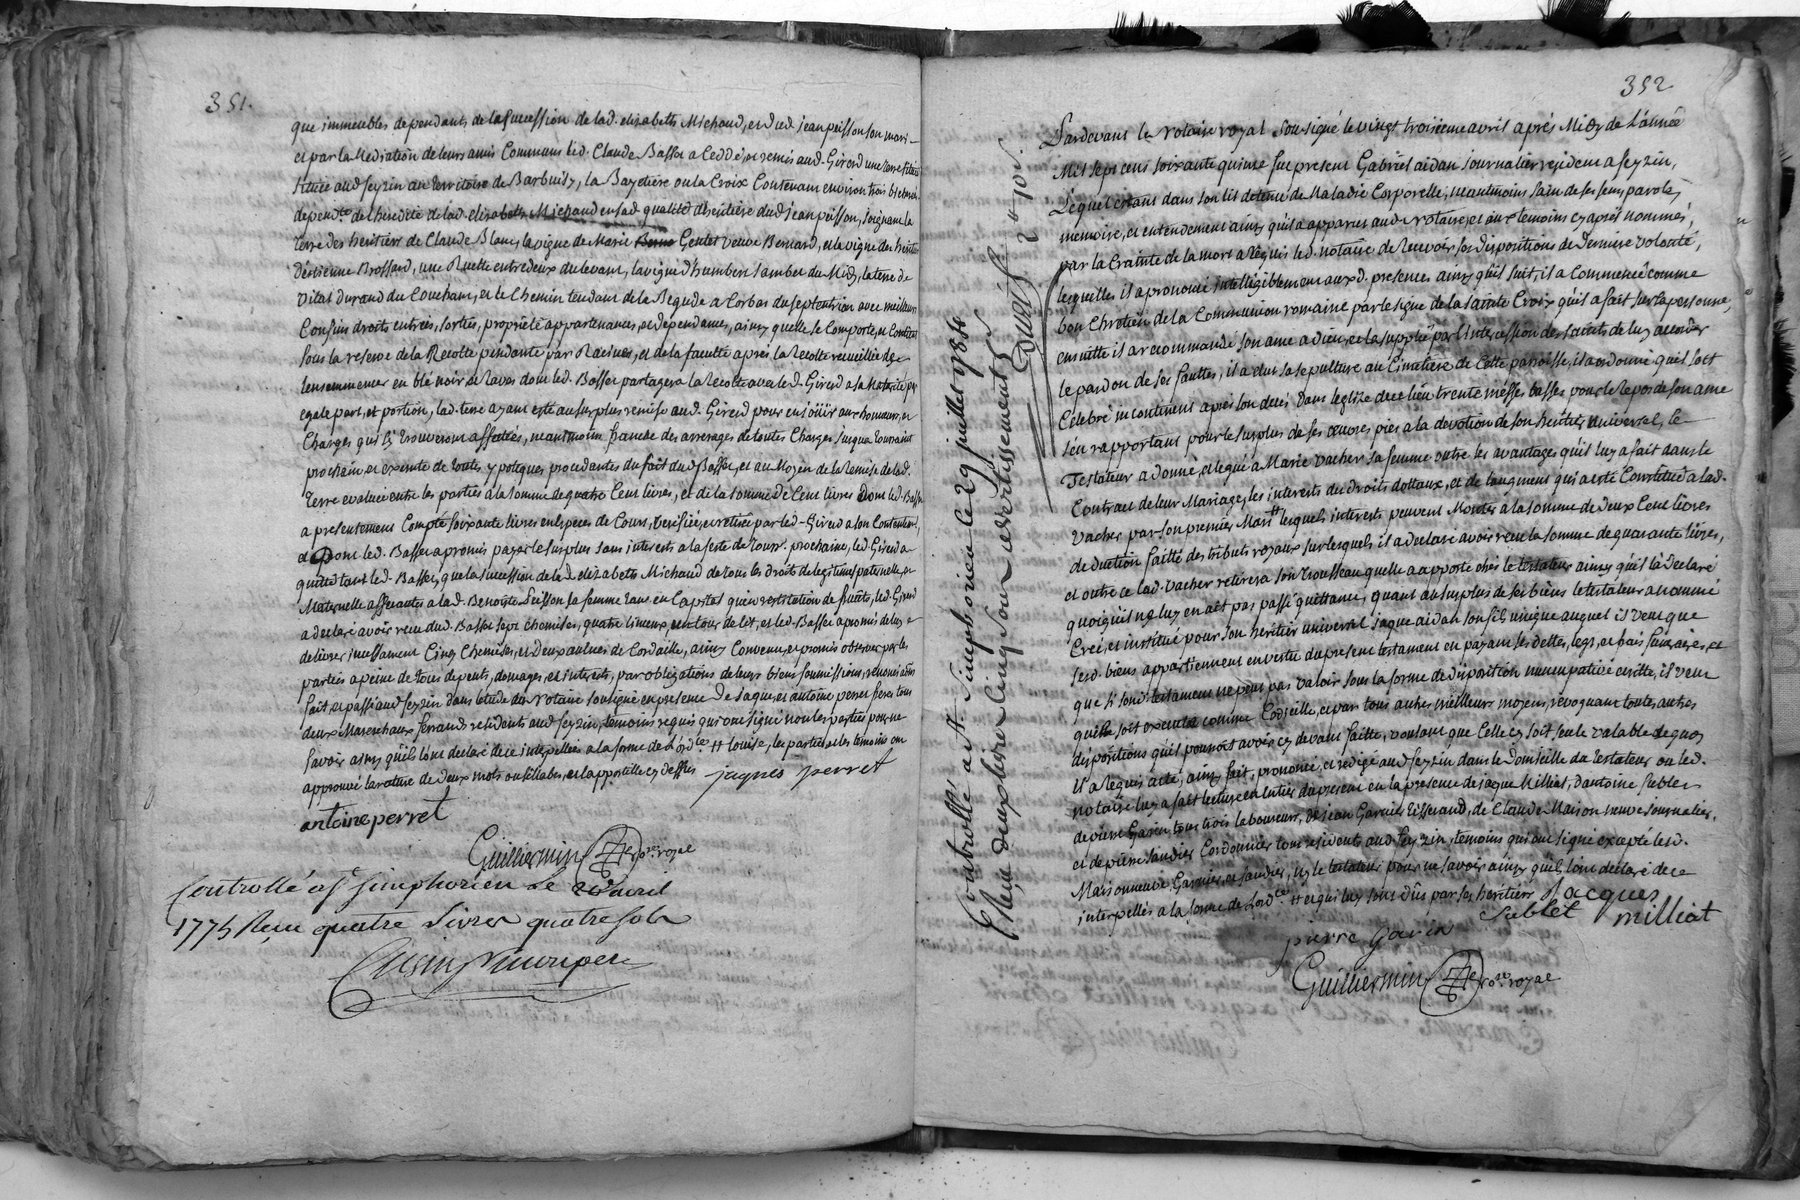 351.
que immeubles dependants de la succession de lad. elizabeth Michaud, et dud. jean peisson son mari
et par la Mediation de leurs amis Communs led. Claude Basset a Ceddé, et remis aud. Girerd une terre
située aud feyzin au territoire de Barbuisy, la Baydiere ou la Croix Contenant environ trois
depend.te de l'heredité de lad. elizabeth Michaud en sad. qualité d'heritiere dud jean peisson, joignant la
terre des heritiers de Claude Blanc, la vigne de Marie Gentet veuve Bernard, et la vigne des
d'estienne Brossard, une Ruelle entredeux du levant, la vigne d'humbert Jambet du Midy, la terre de
vital durand du Couchant, et le Chemin tendant de la Begude a Corbas du septentrion avec meilleurs
Confins droits entrées, sorties, proprieté appartenances, et dependances, ainsy quelle se Comporte, et
sous la reserve de la Recolte pendante par Racines, et de la faculté après la Recolte recueillie de
l'ensemmencer en blé noir et Raves dont led. Basset partagera la recolte avec led. Girerd a sa Maturité par
egale part, et portion, lad. terre ayant esté au surplus remise aud. Girerd pour en joüir aux honneurs, et
Charges qui s'y trouveront affectées, neantmoins franche des arrerages de toutes Charges jusqua toussaint
prochain et exempte de toutes ypoteques procedantes du fait dud Basset, et au Moyen de la Remise de lad.
terre evaluée entre les parties à la somme de quatre Cent livres, et de la somme de Cent livres Dont led. Basset
a presentement Compté soixante livres en Especes de Cours, verifiée, et retirée par led. Girerd a son Contentement,
et Dont led. Basset a promis payer le surplus sans interests a la feste de touss. prochaine, led. Girerd a
quitté tant led. Basset, que la succession de lad elizabeth Michaud de tous les droits de legitimes paternelle, et
Maternelle afferantes a lad. Benoiste Peisson sa femme tant en Capital qu'en restitution de fruits, led. Girerd
a declaré avoir receu dud. Basset sept Chemises, quatre linceux, un tour de lit, et led. Basset a promis de luy
delivrer incessament Cinq Chemises, et deux aulnes de Cordaille, ainsy Convenu, et promis observer par les
parties a peine de tous depents, domages, et interests, par obligations de leurs biens soumissions, renonciations
fait et passé aud feyzin dans letude du Notaire soussigné en presence De Jaque, et antoine perret freres tous
deux Mareschaux ferrand residents aud feyzin, temoins requis qui ont signé non les parties pour ne
savoir ainsy qu'ils l'ont declaré de ce interpellées a la forme de l'ord.ce
approuvé la rature de deux mots ou sillabes, et l'appostille cy dessus jaques perret
antoine perret
Guilliermin No.re royal
Controllé a S.t simphorien le avril
1775 Receu quatre Livres quatre sols
352
Controllé a S.t Simphorien ce 29 juillet 1784
Receu deux livres Cinq sous
Pardevant le Notaire royal Soussigné le vingt troisieme avril après Midy de L'année
Mil sept cent soixante quinze fut present Gabriël aidan journalier resident a feyzin,
Lequel estant dans son lit detenu de Maladie Corporelle, neantmoins sain de ses sens, parole,
memoire, et entendement ainsy qu'il a apparu aud. Notaire, et aux temoins cy après nommés,
par la Crainte de la mort a requis led. notaire de Recevoir ses dispositions de derniere volonté,
lesquelles il a prononcé intelligiblement auxd. presences ainsy qu'il suit, il a Commencé comme
bon Chretien de la Communion romaine par le signe de la sainte Croix qu'il a fait sur sa personne,
ensuitte il a recommandé son ame a dieu, et la supplié par l'intercession des saints de luy accorder
le pardon de ses fauttes, il a elut sa sepulture au Cimetiere de Cette parroisse, il a ordonné qu'il soit
Célébré incontinent après son decés dans l'eglize de ce lieu trente messes basses pour le repos de son ame
s'en rapportant pour le surplus de ses œuvres pies a la devotion de son heritier universel, le
Testateur a donné, et legué a Marie vacher sa femme outre les avantages qu'il luy a fait dans le
Contract de leur Mariage, les interests des droits dottaux, et de l'augment qui a esté Constitué a lad.
vacher par son premier Mary lesquels interests peuvent Monter a la somme de deux Cent livres
deduction faitte des tributs royaux sur lesquels il a declaré avoir receu la somme de quarante livres,
et outre ce lad. vacher retirera son trousseau quelle a apporté chés le testateur ainsy qu'il l'a declaré
quoiqu'il ne luy en aët pas passé quittance, quant au surplus de ses biens le testateur a nommé
Creé, et institué pour son heritier universel jaque aidan son fils unique auquel il veut que
sesd. biens appartiennent en vertu du present testament en payant ses dettes, legs, et frais funeraires, et
que si sond. testament ne peut pas valoir sous la forme de disposition nuncupative ecritte, il veut
qu'elle soit executée comme Codicille, et par tous autres meilleurs moyens, revoquant toutes autres
dispositions qu'il pourroit avoir cy devant faitte, voulant que Celle cy soit seule valable de quoy
Il a requis acte, ainsy fait, prononcé, et redigé aud feyzin dans le Domicille du testateur ou led.
notaire luy a fait lecture en entier du present en la presence de jaque Milliat, d'antoine sublet
de pierre Garin tous trois laboureurs, de jean Garnier tisserand, de Claude Maison neuve journalier,
et de pierre Jandier Cordonnier tous residents aud feyzin, temoins qui ont signé excepté led.
Maisonneuve, Garnier, et Jandier, ny le testateur pour ne savoir ainsy qu'ils l'ont declaré de ce
interpellés a la forme de l'ord.ce
sublet Jacques milliat
pierre Garin
Guilliermin No.re royal